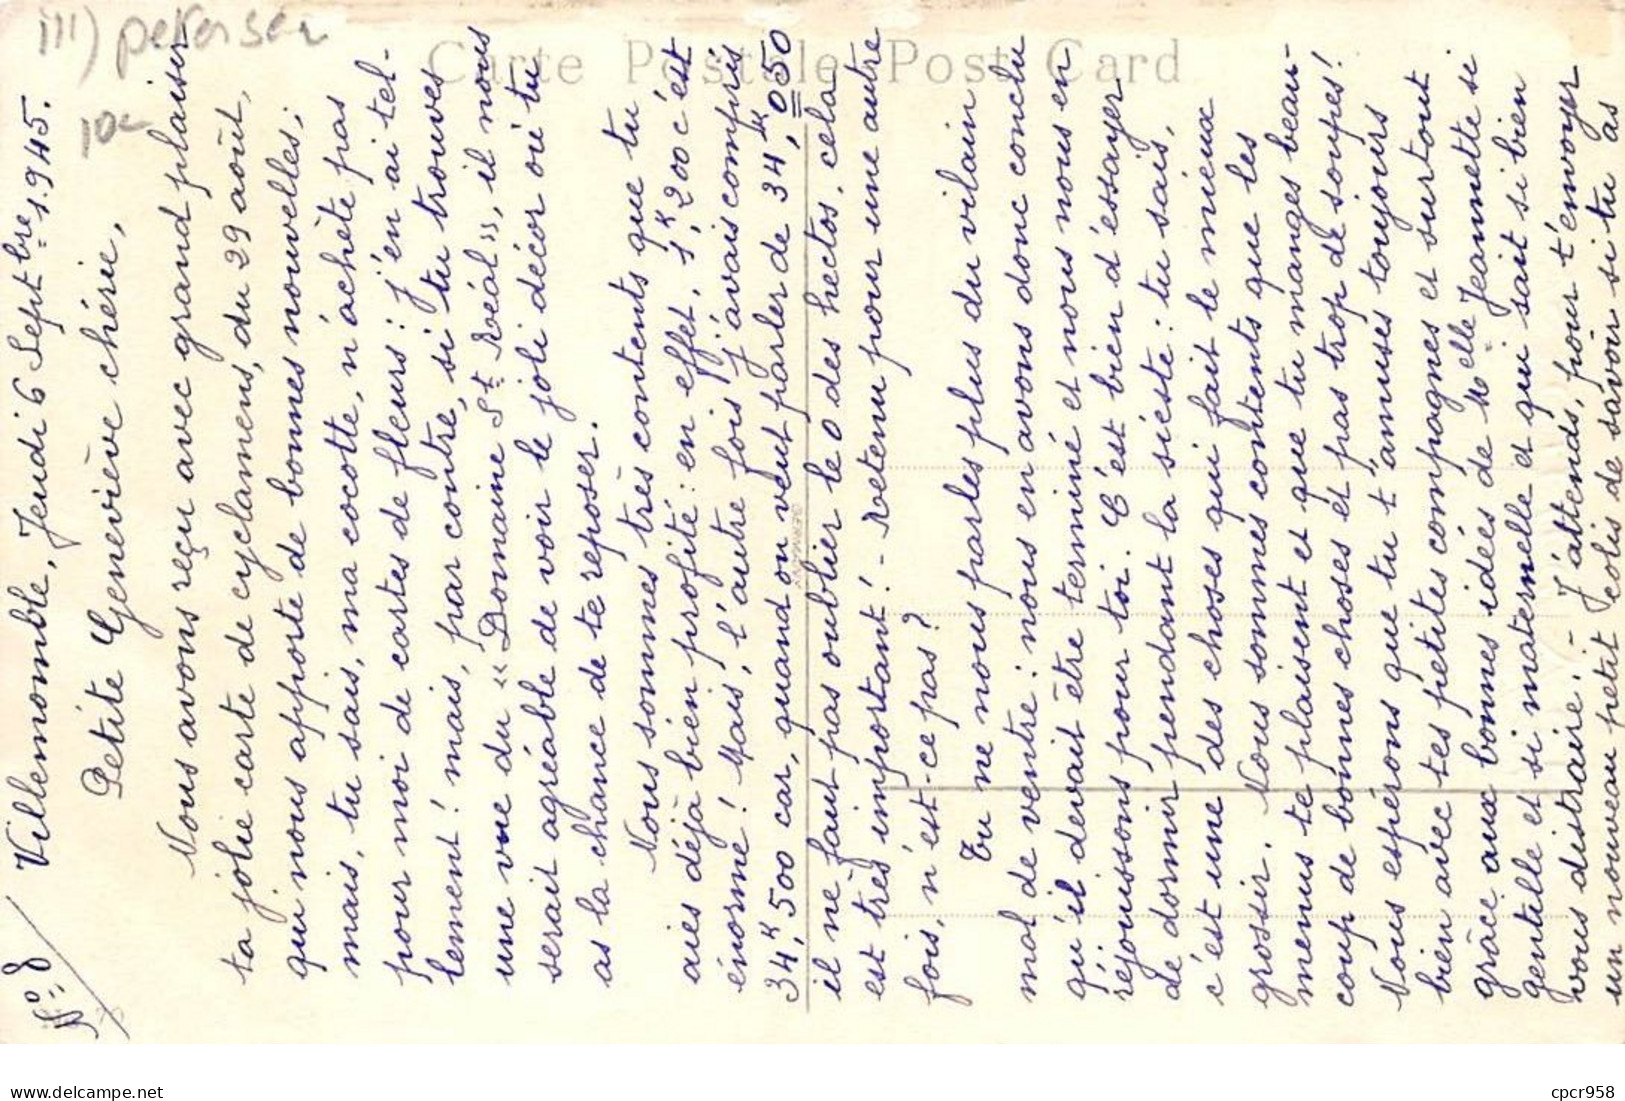 III) petersen
10c
Carte Postale Post Card
N° 8 Villemomble, Jeudi 6 Septbre 1.945.
Petite Geneviève chérie,
Nous avons reçu avec grand plaisir
ta jolie carte de cyclamens, du 29 août,
qui nous apporte de bonnes nouvelles ;
mais, tu sais, ma cocotte, n'achète pas
pour moi de cartes de fleurs : j'en ai tel-
lement ! mais, par contre, si tu trouves
une vue du « Domaine St Réal », il nous
serait agréable de voir le joli décor où tu
as la chance de te reposer.
Nous sommes très contents que tu
aies déjà bien profité : en effet, 1K,200 c'est
énorme ! Mais, l'autre fois j'avais compris
34K,500 car, quand on veut parler de 34K,050
il ne faut pas oublier le 0 des hectos, cela
est très important ! - Retenu pour une autre
fois, n'est-ce pas ?
Tu ne nous parles plus du vilain
mal de ventre : nous en avons donc conclu
qu'il devait être terminé et nous nous en
réjouissons pour toi. C'est bien d'éssayer
de dormir pendant la sièste : tu sais,
c'est une des choses qui fait le mieux
grossir. Nous sommes contents que les
menus te plaisent et que tu manges beau-
coup de bonnes choses et pas trop de soupes !
Nous espérons que tu t'amuses toujours
bien avec tes petites compagnes et surtout
grâce aux bonnes idées de Melle Jeannette si
gentille et si maternelle et qui sait si bien
vous distraire. - J'attends, pour t'envoyer
un nouveau petit colis de savoir si tu as
cpcr958